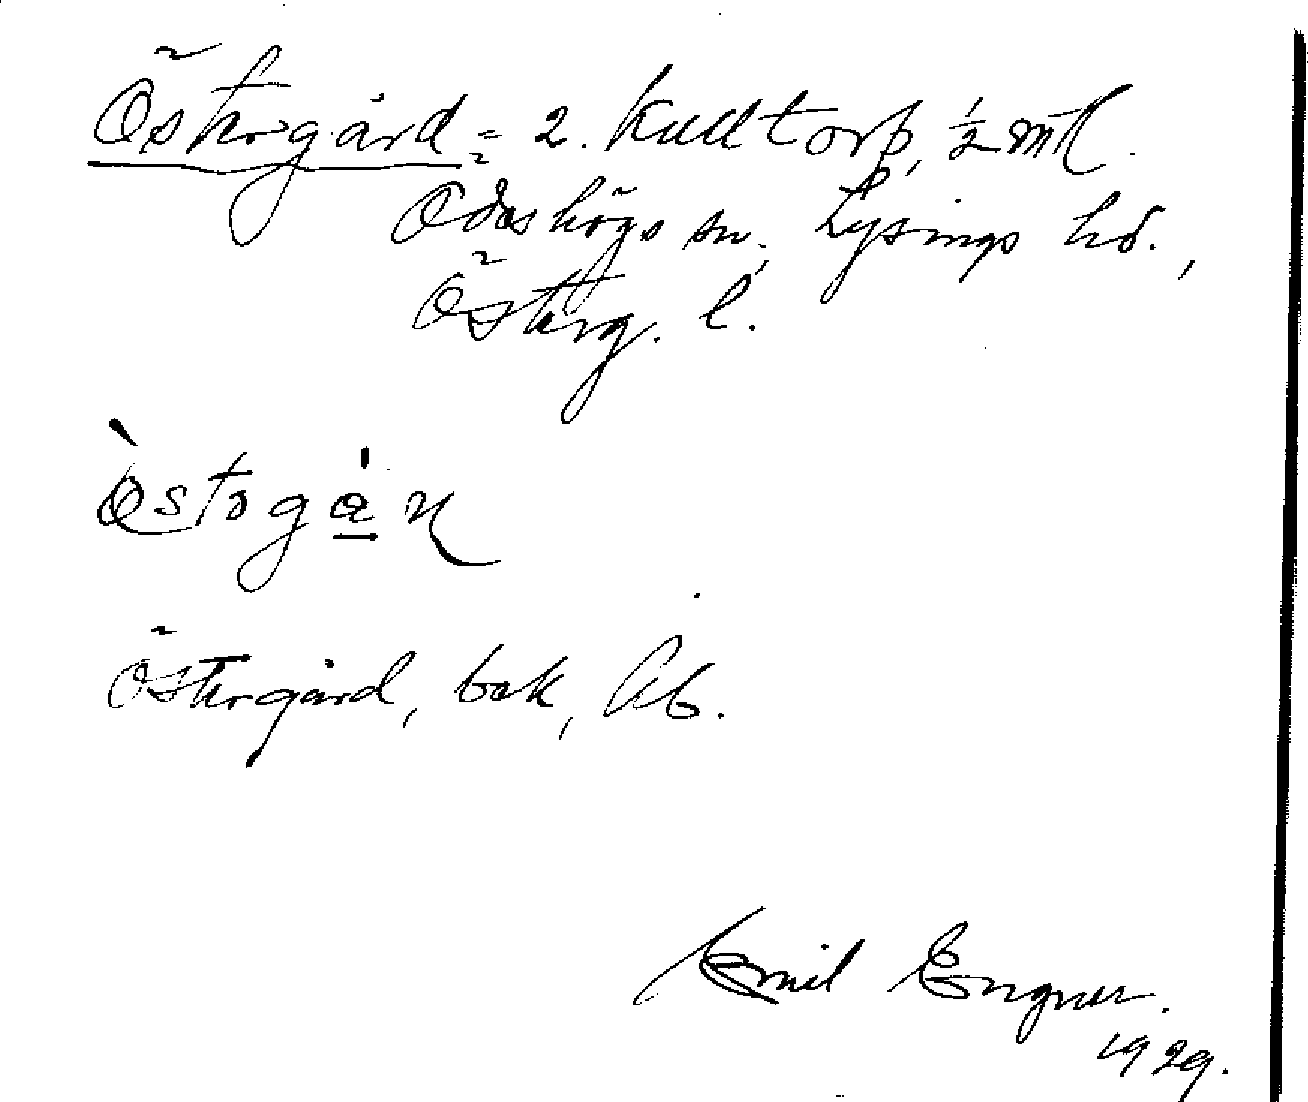 Östergård = 2. Kulltorp, 1/2 mtl.
Ödeshögs sn., Lysings hd.,
Österg. l.
Östergård, bok, Ab.
Emil Engner.
1929.